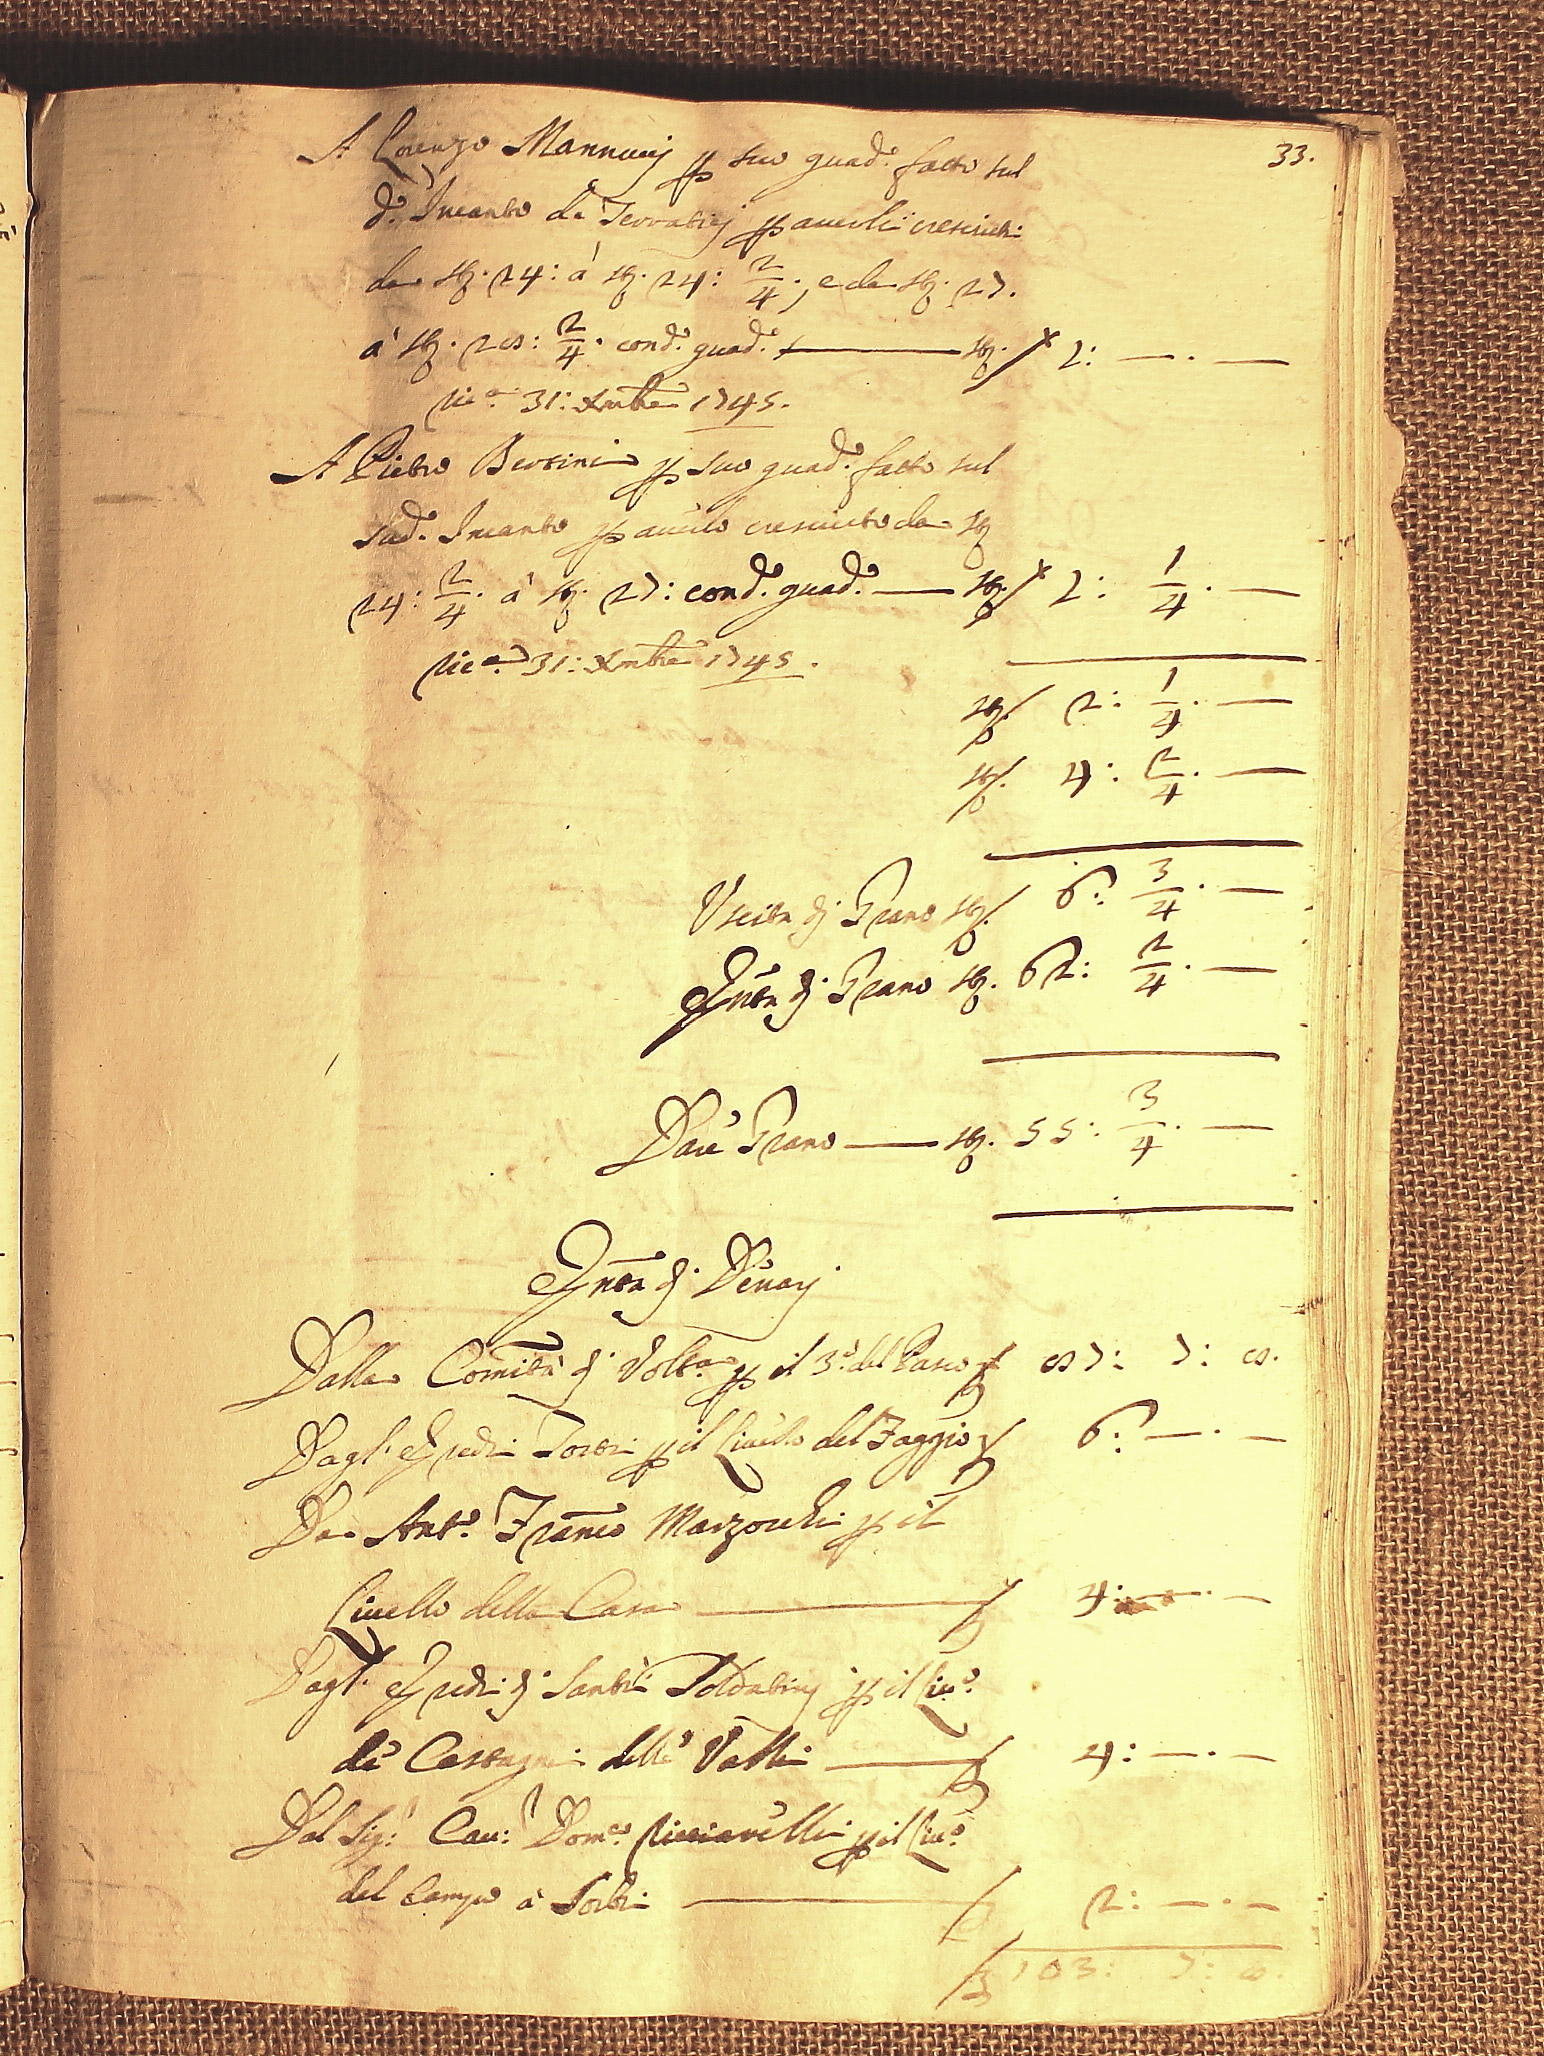 33.
A Lorenzo Mannucij p suo guad.o fatto sul
d.o Incanto de Terratici p auerli cresciuti
da st. 24: à st. 24: 2/4., e da st. 27.
à st. 28: 2/4. con d.o guad.o st. 2: —. —
Rice. 31: Xmbre 1745.
A Pietro Bertini p suo guad.o fatto sul
sud.o Incanto p auerlo cresciuto da st
24: 2/4. à st. 27: con d.o guad.o — st. 2: 1/4. —
Rice. 31: Xmbre 1745.
st. 2: 1/4. —
st. 4: 2/4. —
Uscita di Grano st. 6: 3/4. —
Entra di Grano st. 62: 2/4. —
Daue Grano — st. 55: 3/4. —
Entra di Denarj
Dalla Comità di Volt.a p il 3.o del Pasco 87: 7: 8.
Dagl. Eredi Torri p il Liuello del Faggio 6: —. —
Da Ant.o Franco Marzocchi p il
Liuello della Casa — 4: —. —
Dagl. Eredi di Santi Soldatini p il Liu.o
de Castagni delle Valli — 4: —. —
Dal Sig.r Cau: Dom.co Ricciarelli p il Liu.o
del Campo à Sorbi — 2: —. —
103: 7: 8.